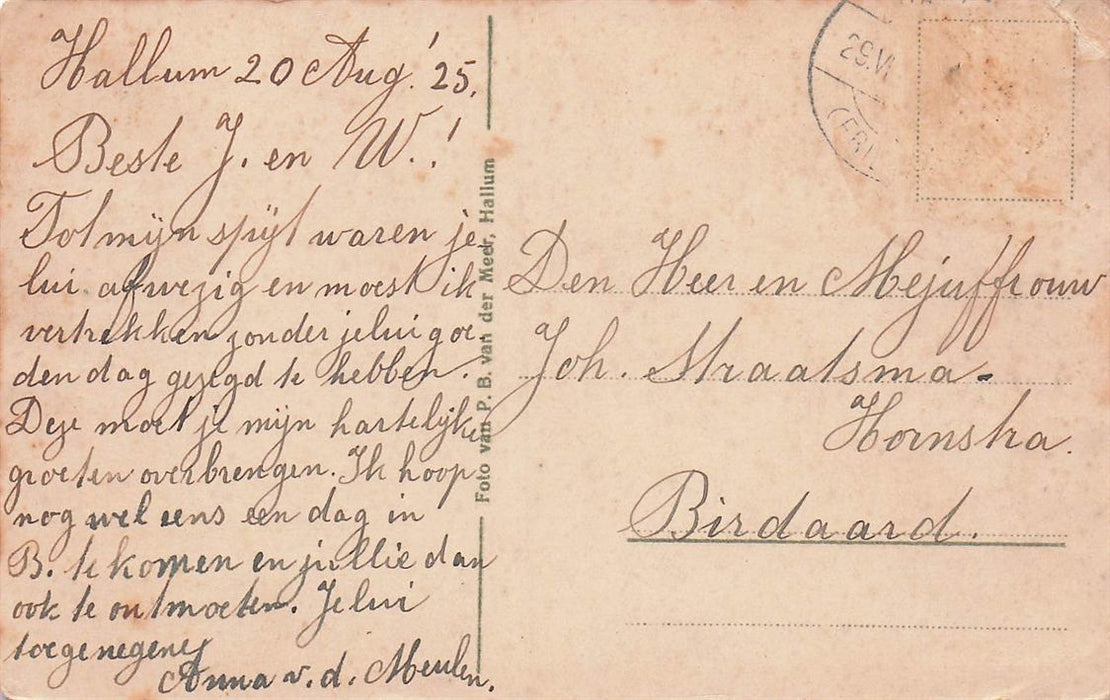 Hallum 20 Aug. '25.
Beste J. en W.!
Tot mijn spijt waren je
lui afwezig en moest ik
vertrekken zonder jelui goe
den dag gezegd te hebben.
Deze moet je mijn hartelijke
groeten overbrengen. Ik hoop
nog wel eens een dag in
B. te komen en jullie dan
ook te ontmoeten. Jelui
toegenegene
Anna v. d. Meulen.
Foto van P. B. van der Meer, Hallum
29.VI
(FRI
Den Heer en Mejuffrouw
Joh. Straatsma-
Hoornstra.
Birdaard.